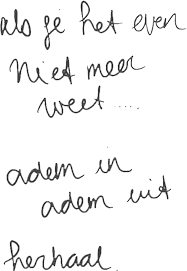 als je het even
niet meer
weet.....
adem in
adem uit
herhaal.